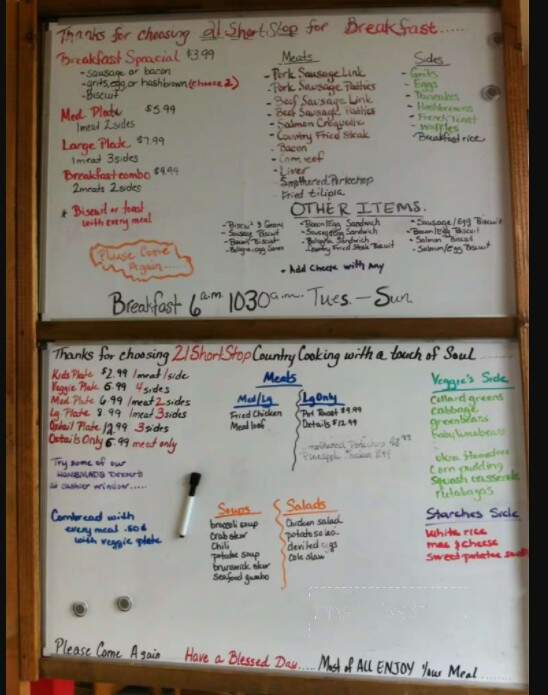 Thanks for choosing 21 Short Stop for Breakfast......
Breakfast Speacial $3.99
- Sausage or bacon
- grits, egg or hashbrown (choose 2)
- Biscuit
Med Plate $5.99
1 meat 2 sides
Large Plate $7.99
1 meat 3 sides
Breakfast combo $9.99
2 meats 2 sides
* Biscuit or toast
with every meal
Please Come
Again....
Meats
- Pork Sausage Link
- Pork Sausage Patties
- Beef Sausage Link
- Beef Sausage Patties
- Salmon Croquette
- Country Fried Steak
- Bacon
- Corn beef
- Liver
- Smothered Porkchop
Fried tilipia
Sides
- Grits
- Eggs
- Pancakes
- Hashbrowns
- French Toast
- Waffles
Breakfast rice
OTHER ITEMS.
- Sausage Biscuit
- Bacon Biscuit
- Bacon/Egg Sandwich
- Sausage/Egg Sandwich
- Bologna Sandwich
- Country Fried Steak Biscuit
- Sausage/Egg Biscuit
- Bacon/Egg Biscuit
- Salmon Biscuit
- Salmon/Egg Biscuit
- Add Cheese with Any
Breakfast 6 a.m. 1030 a.m. Tues. - Sun
Thanks for choosing 21 Short Stop Country Cooking with a touch of Soul......
Kids Plate $2.99 1 meat/1 side
Veggie Plate 5.99 4 sides
Med Plate 6.99 1 meat 2 sides
Lg Plate 8.99 1 meat 3 sides
Oxtail Plate 12.99 3 sides
Oxtails Only 6.99 meat only
Try some of our
HOMEMADE Desserts
at cashier window.....
Cornbread with
every meal .50¢
with veggie plate
Meats
Med/Lg
Fried Chicken
Meat loaf
Lg Only
Pot Roast $9.99
Oxtails $12.99
Soups
broccoli soup
Crab stew
Chili
potato soup
brunswick stew
seafood gumbo
Salads
Chicken salad
potato salad
deviled eggs
Cole slaw
Veggie's Side
collard greens
cabbage
greenbeans
baby limabeans
okra &tomatoes
Corn pudding
squash casserole
rutabagas
Starches Side
White rice
mac & cheese
Sweet potatoe
Please Come Again Have a Blessed Day.... Most of ALL ENJOY Your Meal......